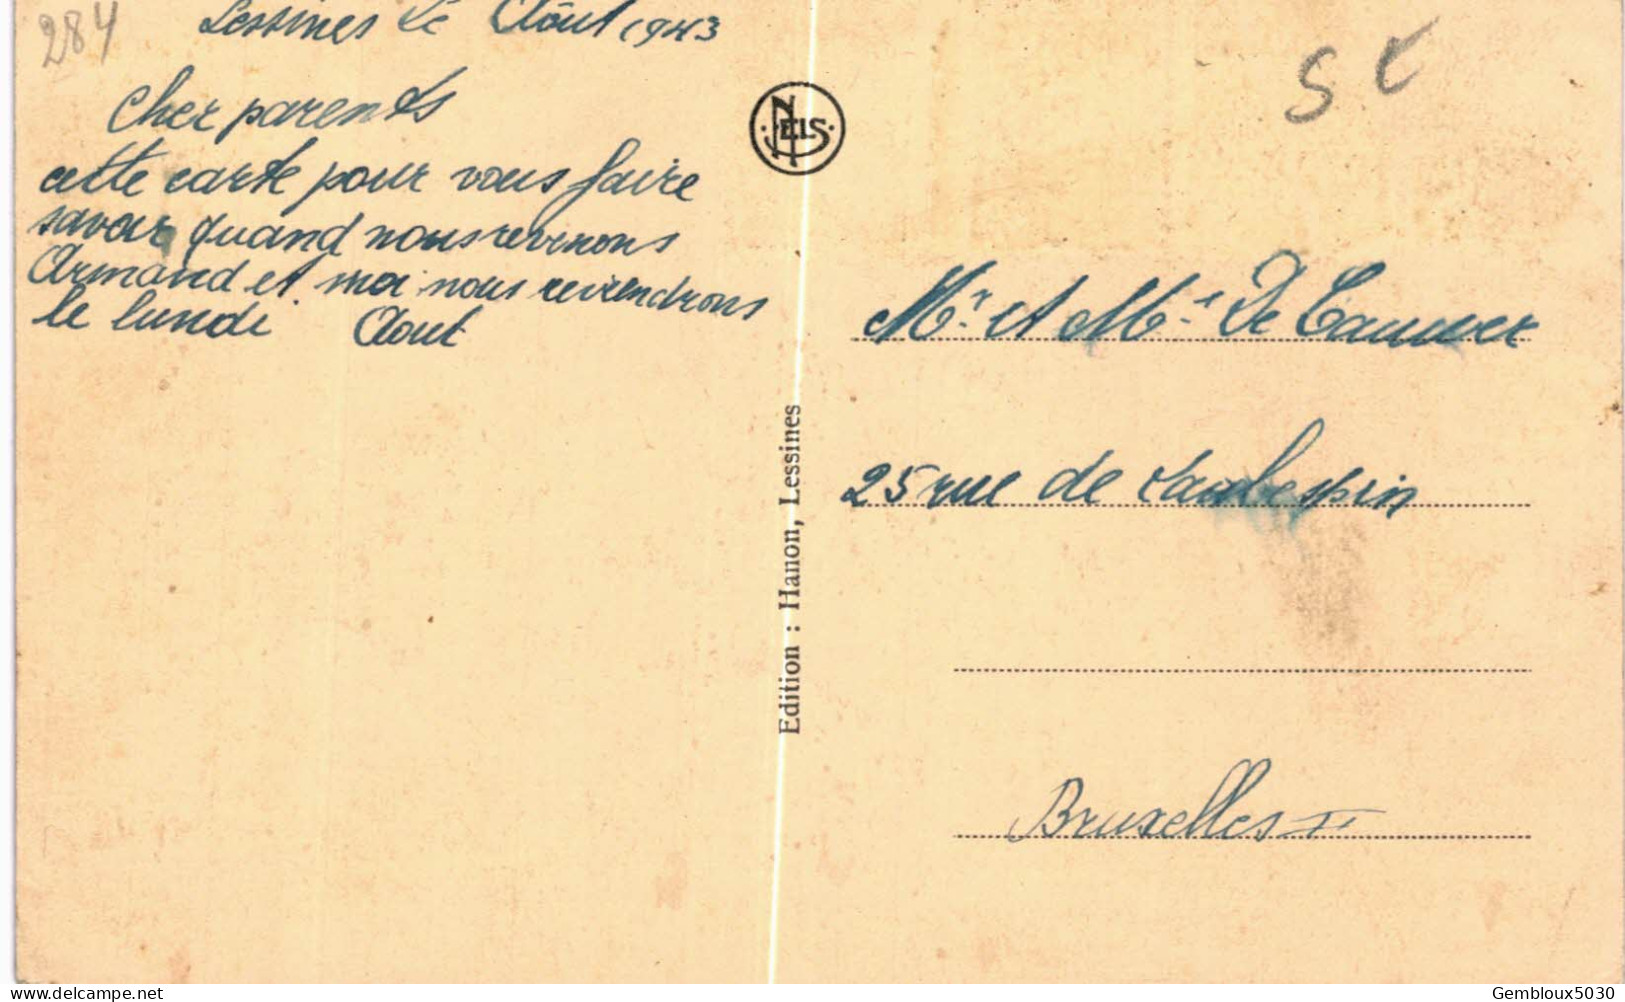 284
Lessines Le Aôut 1943
Cher parents
cette carte pour vous faire
savoir quand nous revenons
Armand et moi nous reviendrons
le lundi Aout
NELS
Edition : Hanon, Lessines
St
Mr. et Me. De Cauwer
25 rue de Laubespin
Bruxelles II
delcampe.net
Gembloux5030